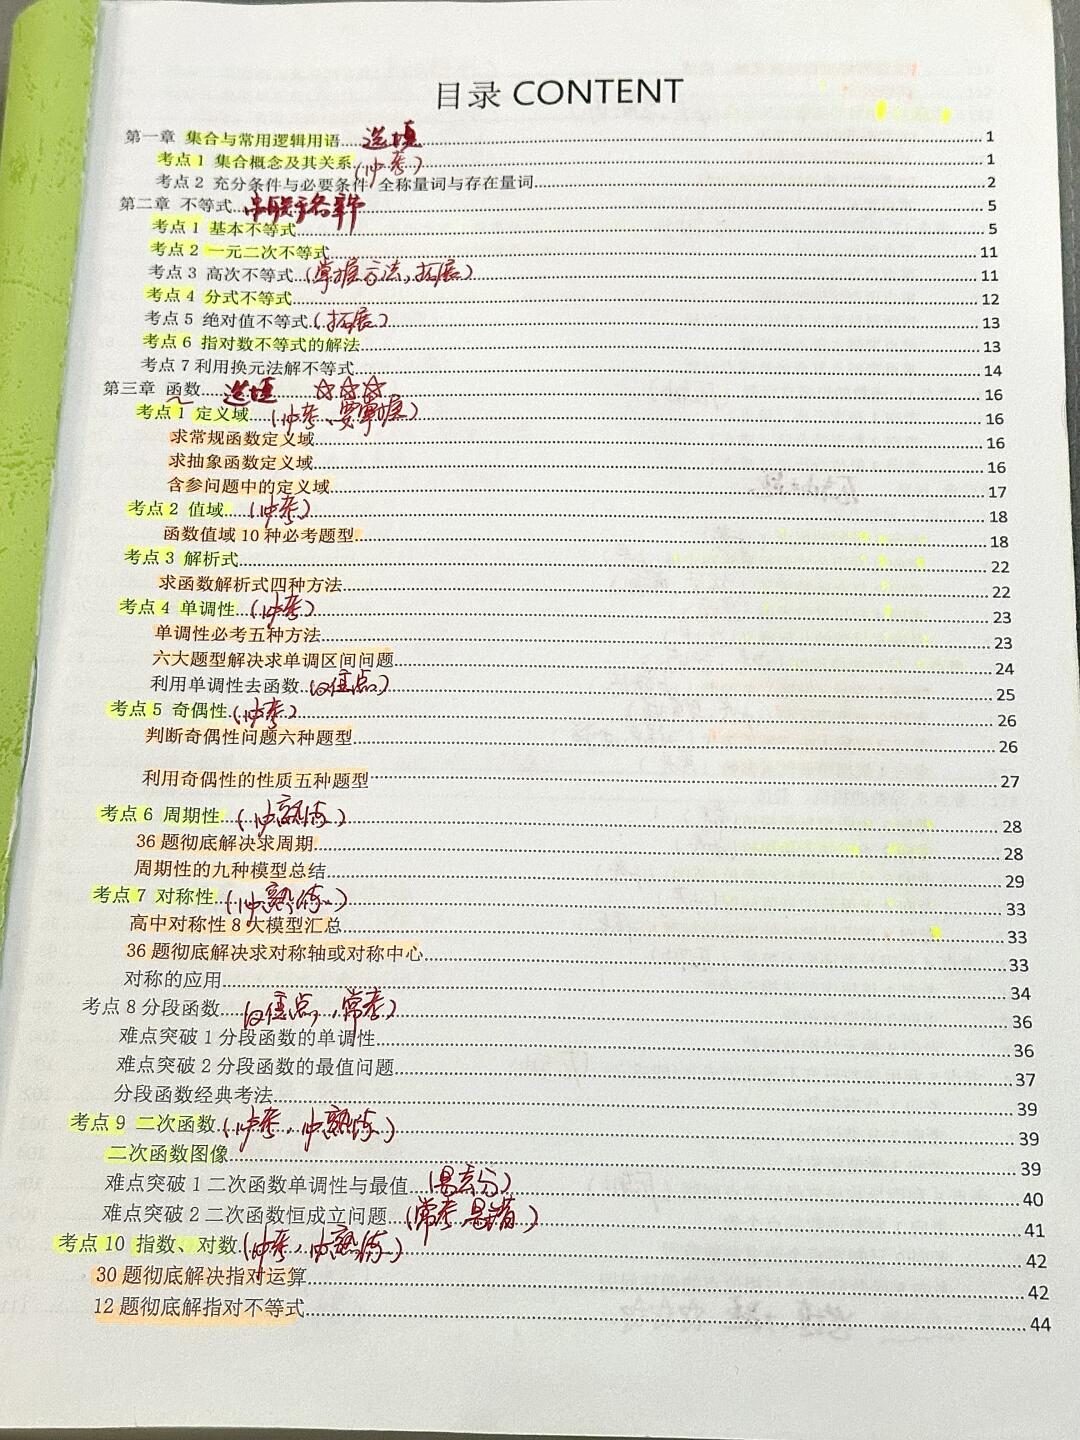 目录 CONTENT
第一章 集合与常用逻辑用语 选填 1
考点 1 集合概念及其关系 (必考) 1
考点 2 充分条件与必要条件 全称量词与存在量词 2
第二章 不等式 串联于各章节 5
考点 1 基本不等式 5
考点 2 一元二次不等式 11
考点 3 高次不等式 (掌握方法,拓展) 11
考点 4 分式不等式 12
考点 5 绝对值不等式 (拓展) 13
考点 6 指对数不等式的解法 13
考点 7 利用换元法解不等式 14
第三章 函数 选填 ☆☆☆ 16
考点 1 定义域 (必考、要掌握) 16
求常规函数定义域 16
求抽象函数定义域 16
含参问题中的定义域 17
考点 2 值域 (必考) 18
函数值域 10 种必考题型 18
考点 3 解析式 22
求函数解析式四种方法 22
考点 4 单调性 (必考) 23
单调性必考五种方法 23
六大题型解决求单调区间问题 24
利用单调性去函数 (公众点) 25
考点 5 奇偶性 (必考) 26
判断奇偶性问题六种题型 26
利用奇偶性的性质五种题型 27
考点 6 周期性 (必熟练) 28
36 题彻底解决求周期 28
周期性的九种模型总结 29
考点 7 对称性 (必熟练) 33
高中对称性 8 大模型汇总 33
36 题彻底解决求对称轴或对称中心 33
对称的应用 34
考点 8 分段函数 常考) 36
难点突破 1 分段函数的单调性 36
难点突破 2 分段函数的最值问题 37
分段函数经典考法 39
考点 9 二次函数 (必考,必熟练) 39
二次函数图像 39
难点突破 1 二次函数单调性与最值 (易丢分) 40
难点突破 2 二次函数恒成立问题 (常考,易错) 41
考点 10 指数、对数 (必考,必熟练) 42
30 题彻底解决指对运算 42
12 题彻底解指对不等式 44